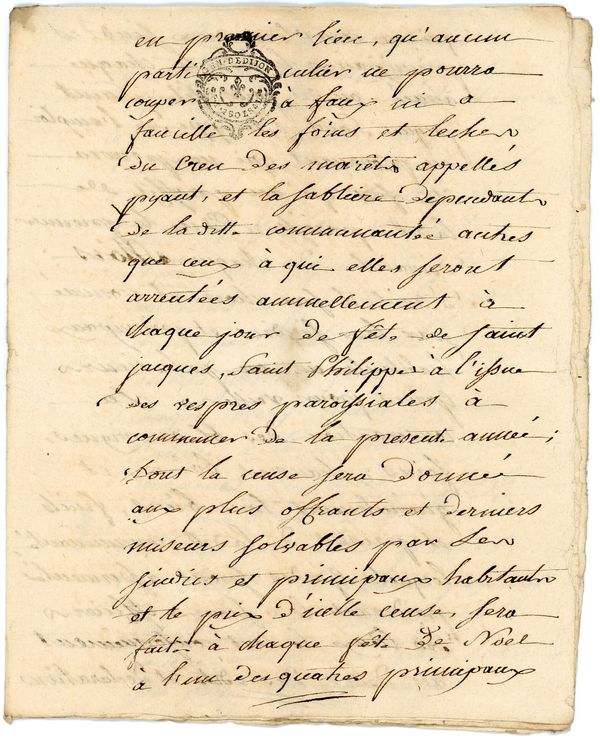 en premier lieu, qu'aucun
parti culier ne pourra
GEN. DE DIJON
couper à faux ni a
faucille les foins et lecher
du Creu des marêts appellés
pyant, et la sabliere dependant
de la ditte communauté autres
que ceux à qui elles seront
arrentées annuellement à
chaque jour de fête de saint
jacques, Saint Philippe à l'issue
des vespres paroissiales à
commencer de la present année;
Dont la cense sera donnée
aux plus offrants et derniers
miseurs solvables par Les
sindics et principaux habitants
et le prix d'icelle cense, sera
faite à chaque fête de Noel
à l'un des quatres principaux